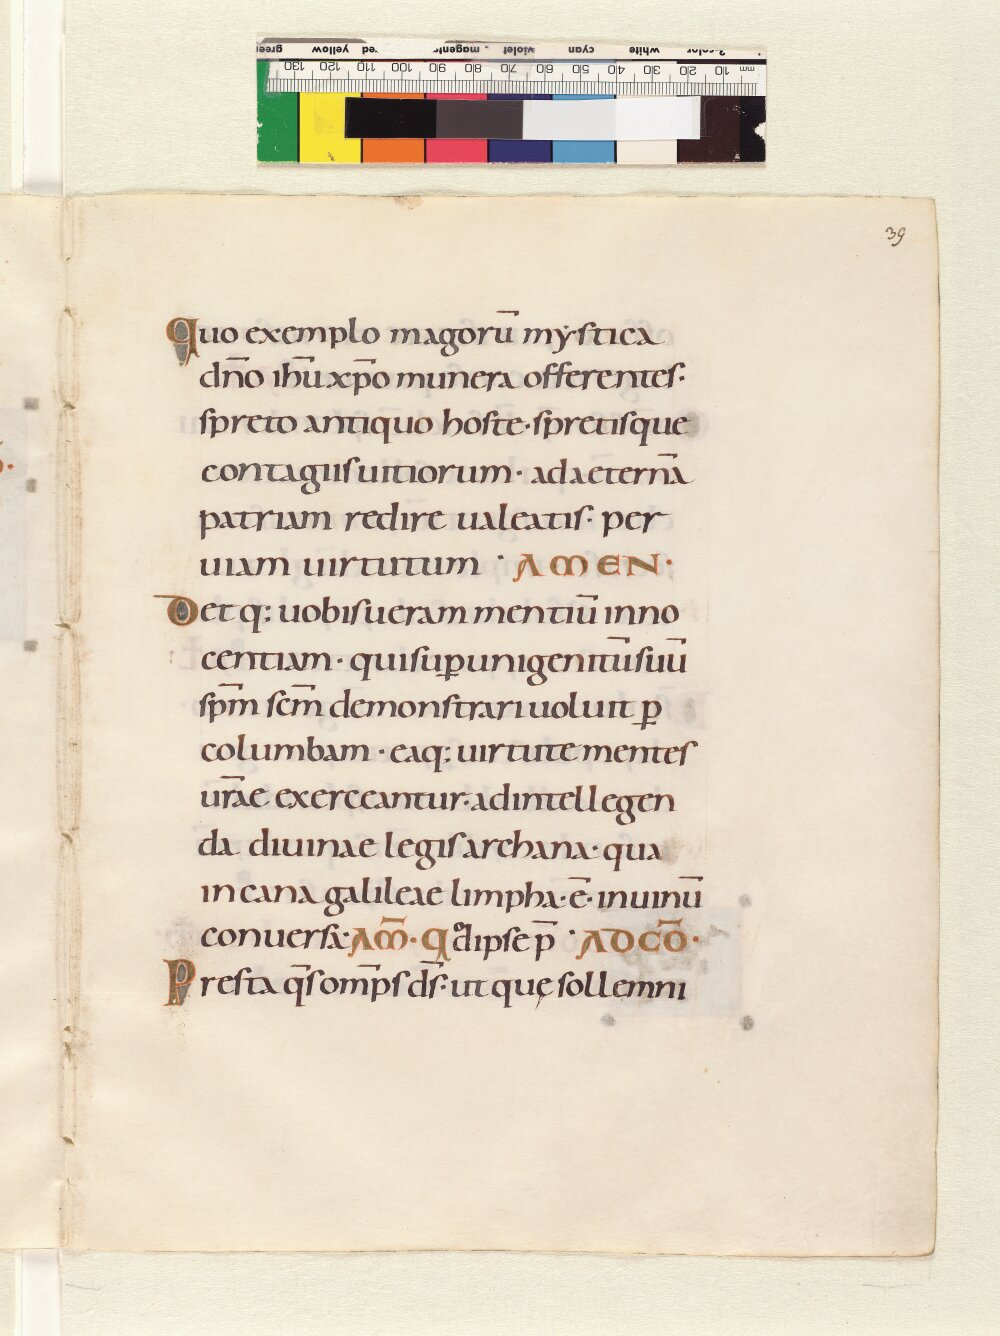 green yellow red magenta violet cyan white 3-color
130 120 110 100 90 80 70 60 50 40 30 20 10 mm
39
Quo exemplo magorū mẏstica
dn̄o ihū xp̄o munera offerentes·
spreto antiquo hoste· spretisque
contagiis uitiorum· ad aeternā
patriam redire ualeatis· per
uiam uirtutum · AMEN·
Det q: uobis ueram mentiū inno
centiam· qui sup̱ unigenitū suū
sp̄m sc̄m demonstrari uoluit ꝑ
columbam· eaq: uirtute mentes
ur̄ae exerceantur· ad intellegen
da diuinae legis archana· qua
in cana galileae limpha· ē· in uinū
conuersa· AM̄· Qđ ipse p̄ · AD CŌ·
Presta qs̄ omp̄s ds̄· ut quę sollemni